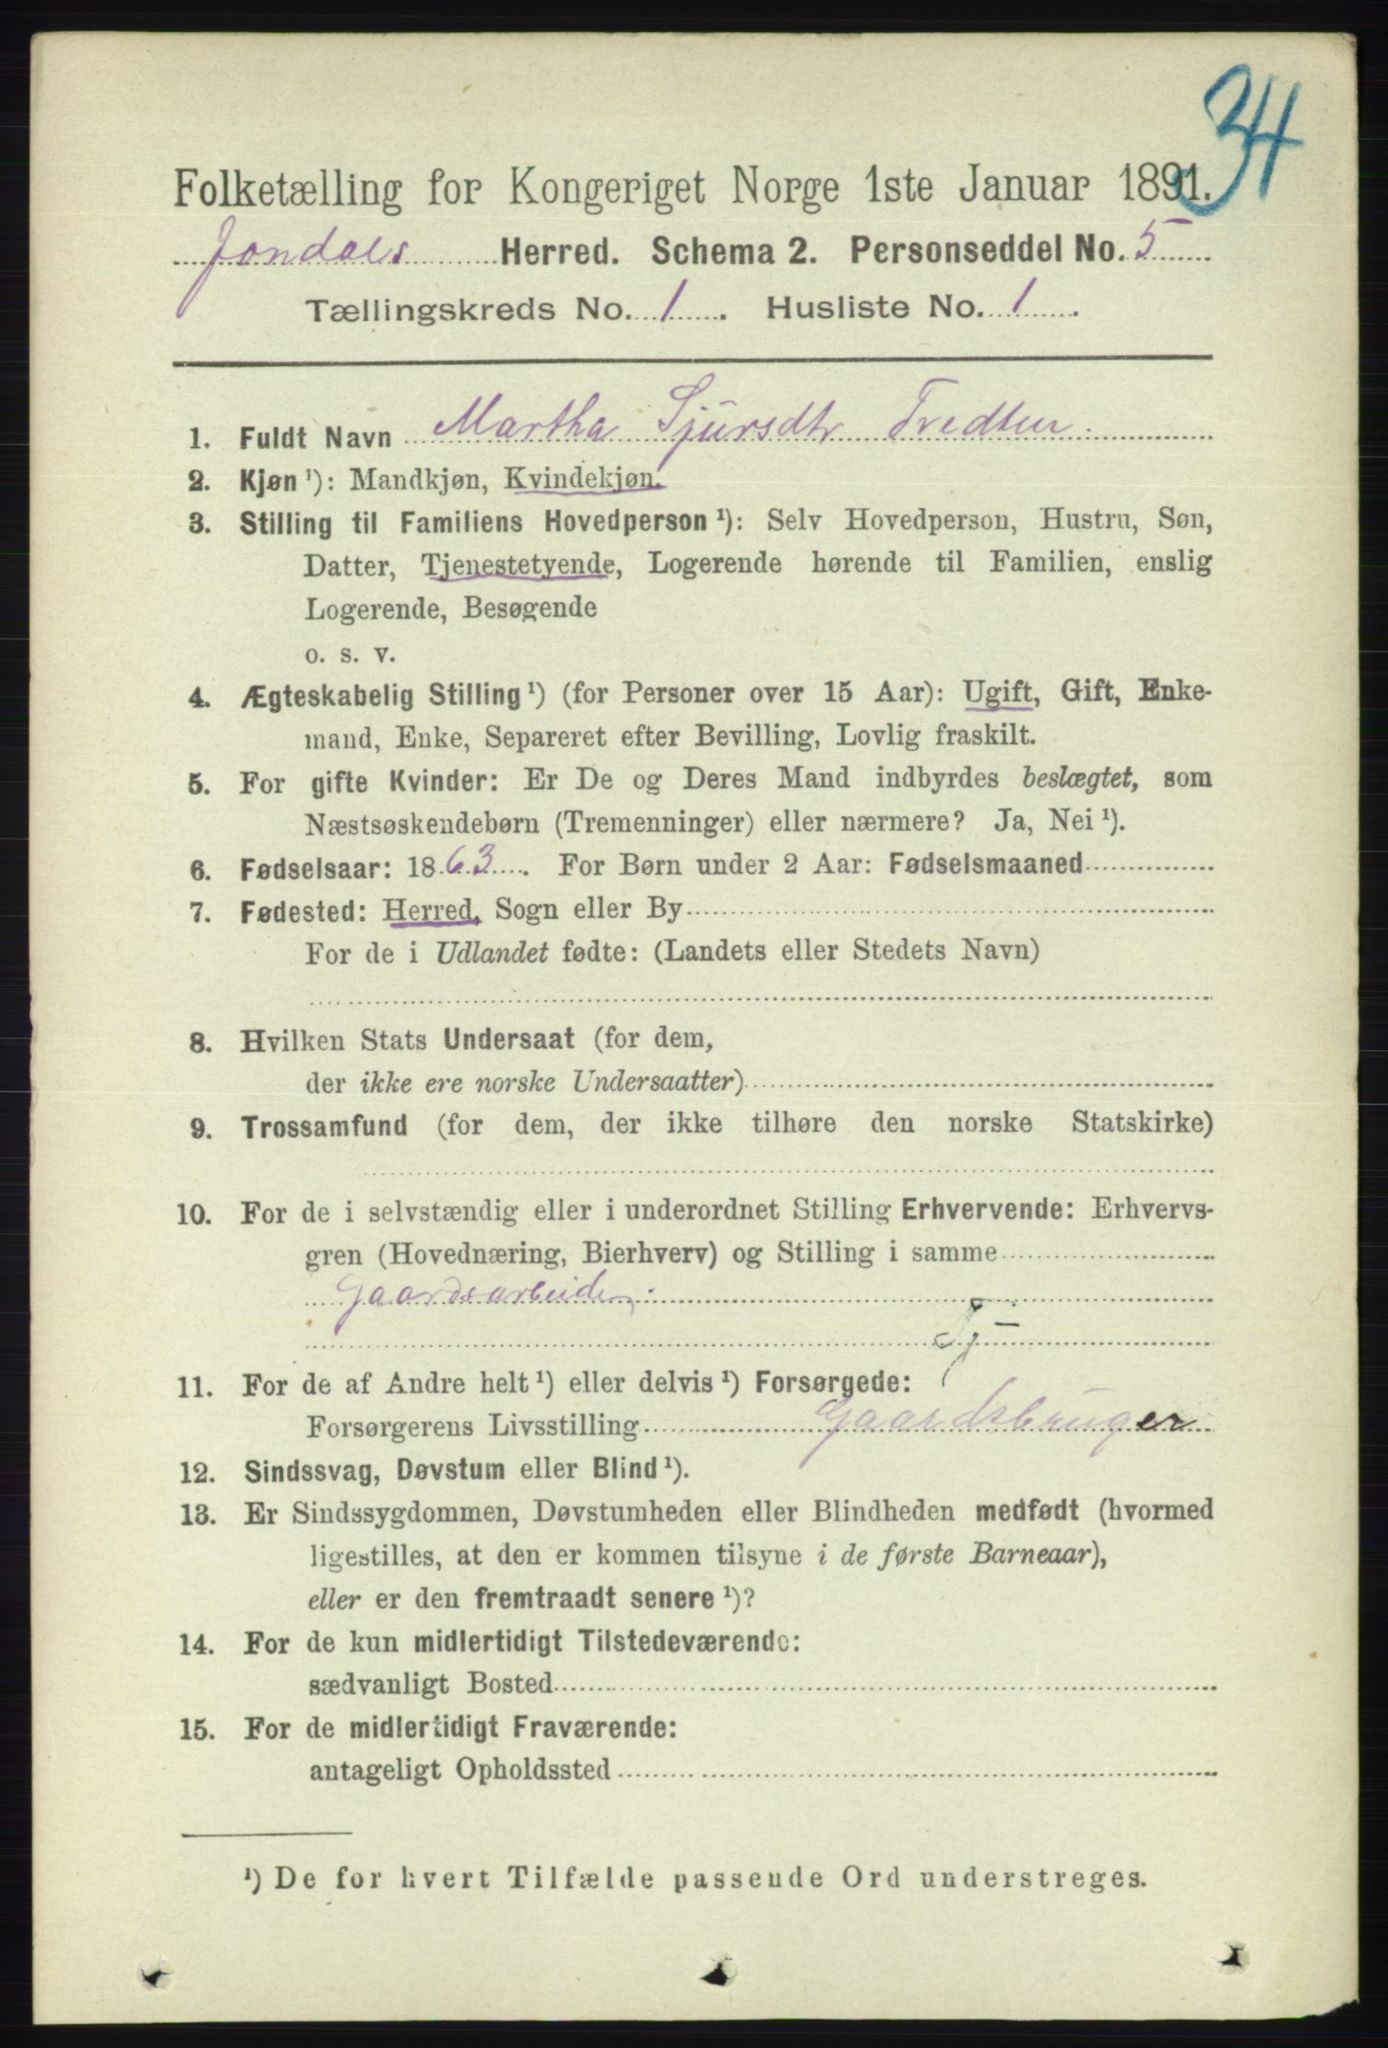 34
Folketælling for Kongeriget Norge 1ste Januar 1891.
Jondals Herred. Schema 2. Personseddel No. 5
Tællingskreds No. 1. Husliste No. 1.
1. Fuldt Navn Martha Sjursdtr Tredten.
2. Kjøn ¹): Mandkjøn, Kvindekjøn.
3. Stilling til Familiens Hovedperson ¹): Selv Hovedperson, Hustru, Søn,
Datter, Tjenestetyende, Logerende hørende til Familien, enslig
Logerende, Besøgende
o. s. v.
4. Ægteskabelig Stilling ¹) (for Personer over 15 Aar): Ugift, Gift, Enke-
mand, Enke, Separeret efter Bevilling, Lovlig fraskilt.
5. For gifte Kvinder: Er De og Deres Mand indbyrdes beslægtet, som
Næstsøskendebørn (Tremenninger) eller nærmere? Ja, Nei ¹).
6. Fødselsaar: 1863. For Børn under 2 Aar: Fødselsmaaned
7. Fødested: Herred, Sogn eller By
For de i Udlandet fødte: (Landets eller Stedets Navn)
8. Hvilken Stats Undersaat (for dem,
der ikke ere norske Undersaatter)
9. Trossamfund (for dem, der ikke tilhøre den norske Statskirke)
10. For de i selvstændig eller i underordnet Stilling Erhvervende: Erhvervs-
gren (Hovednæring, Bierhverv) og Stilling i samme
Gaardsarbeide.
Tj
11. For de af Andre helt ¹) eller delvis ¹) Forsørgede:
Forsørgerens Livsstilling Gaardsbruger
12. Sindssvag, Døvstum eller Blind ¹).
13. Er Sindssygdommen, Døvstumheden eller Blindheden medfødt (hvormed
ligestilles, at den er kommen tilsyne i de første Barneaar),
eller er den fremtraadt senere ¹)?
14. For de kun midlertidigt Tilstedeværende:
sædvanligt Bosted
15. For de midlertidigt Fraværende:
antageligt Opholdssted
¹) De for hvert Tilfælde passende Ord understreges.